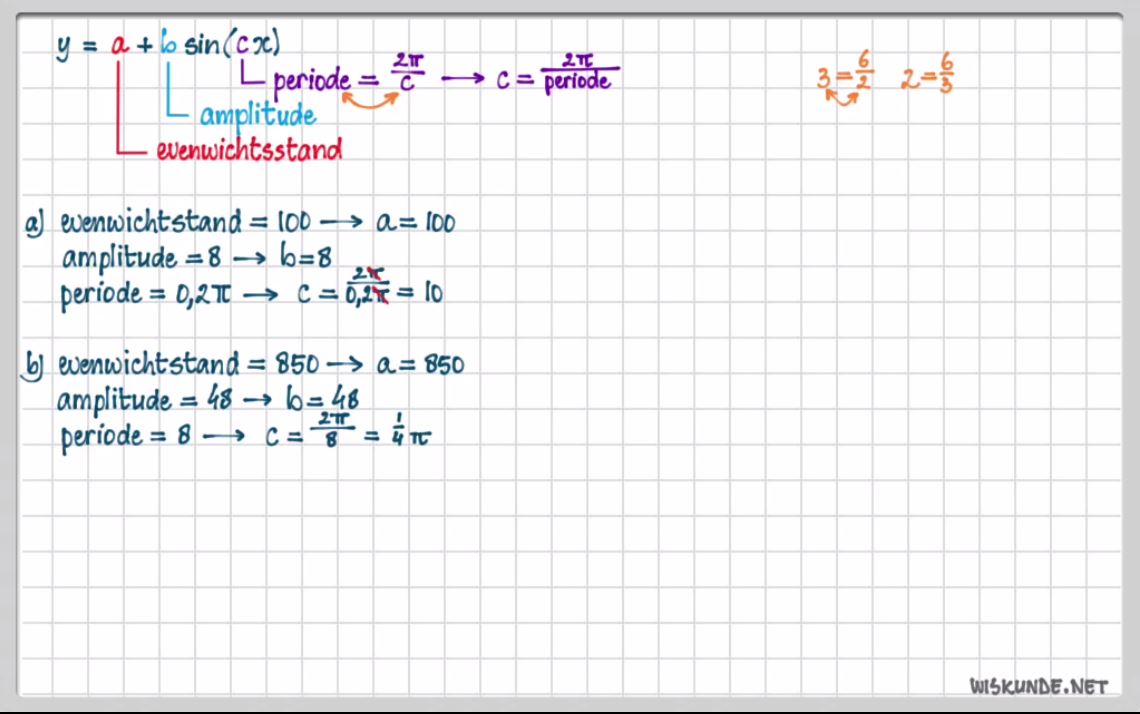 y = a + b sin(cx)
periode = 2π/c → c = 2π/periode
3 = 6/2 2 = 6/3
amplitude
evenwichtsstand
a) evenwichtstand = 100 → a = 100
amplitude = 8 → b = 8
periode = 0,2π → c = 2π/0,2π = 10
b) evenwichtstand = 850 → a = 850
amplitude = 48 → b = 48
periode = 8 → c = 2π/8 = 1/4 π
WISKUNDE.NET